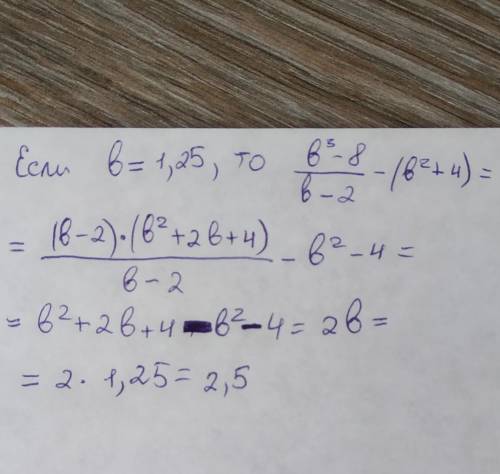 Если в = 1,25, то (в³ - 8)/(в - 2) - (в² + 4) =
= ((в - 2) · (в² + 2в + 4))/(в - 2) - в² - 4 =
= в² + 2в + 4 - в² - 4 = 2в =
= 2 · 1,25 = 2,5